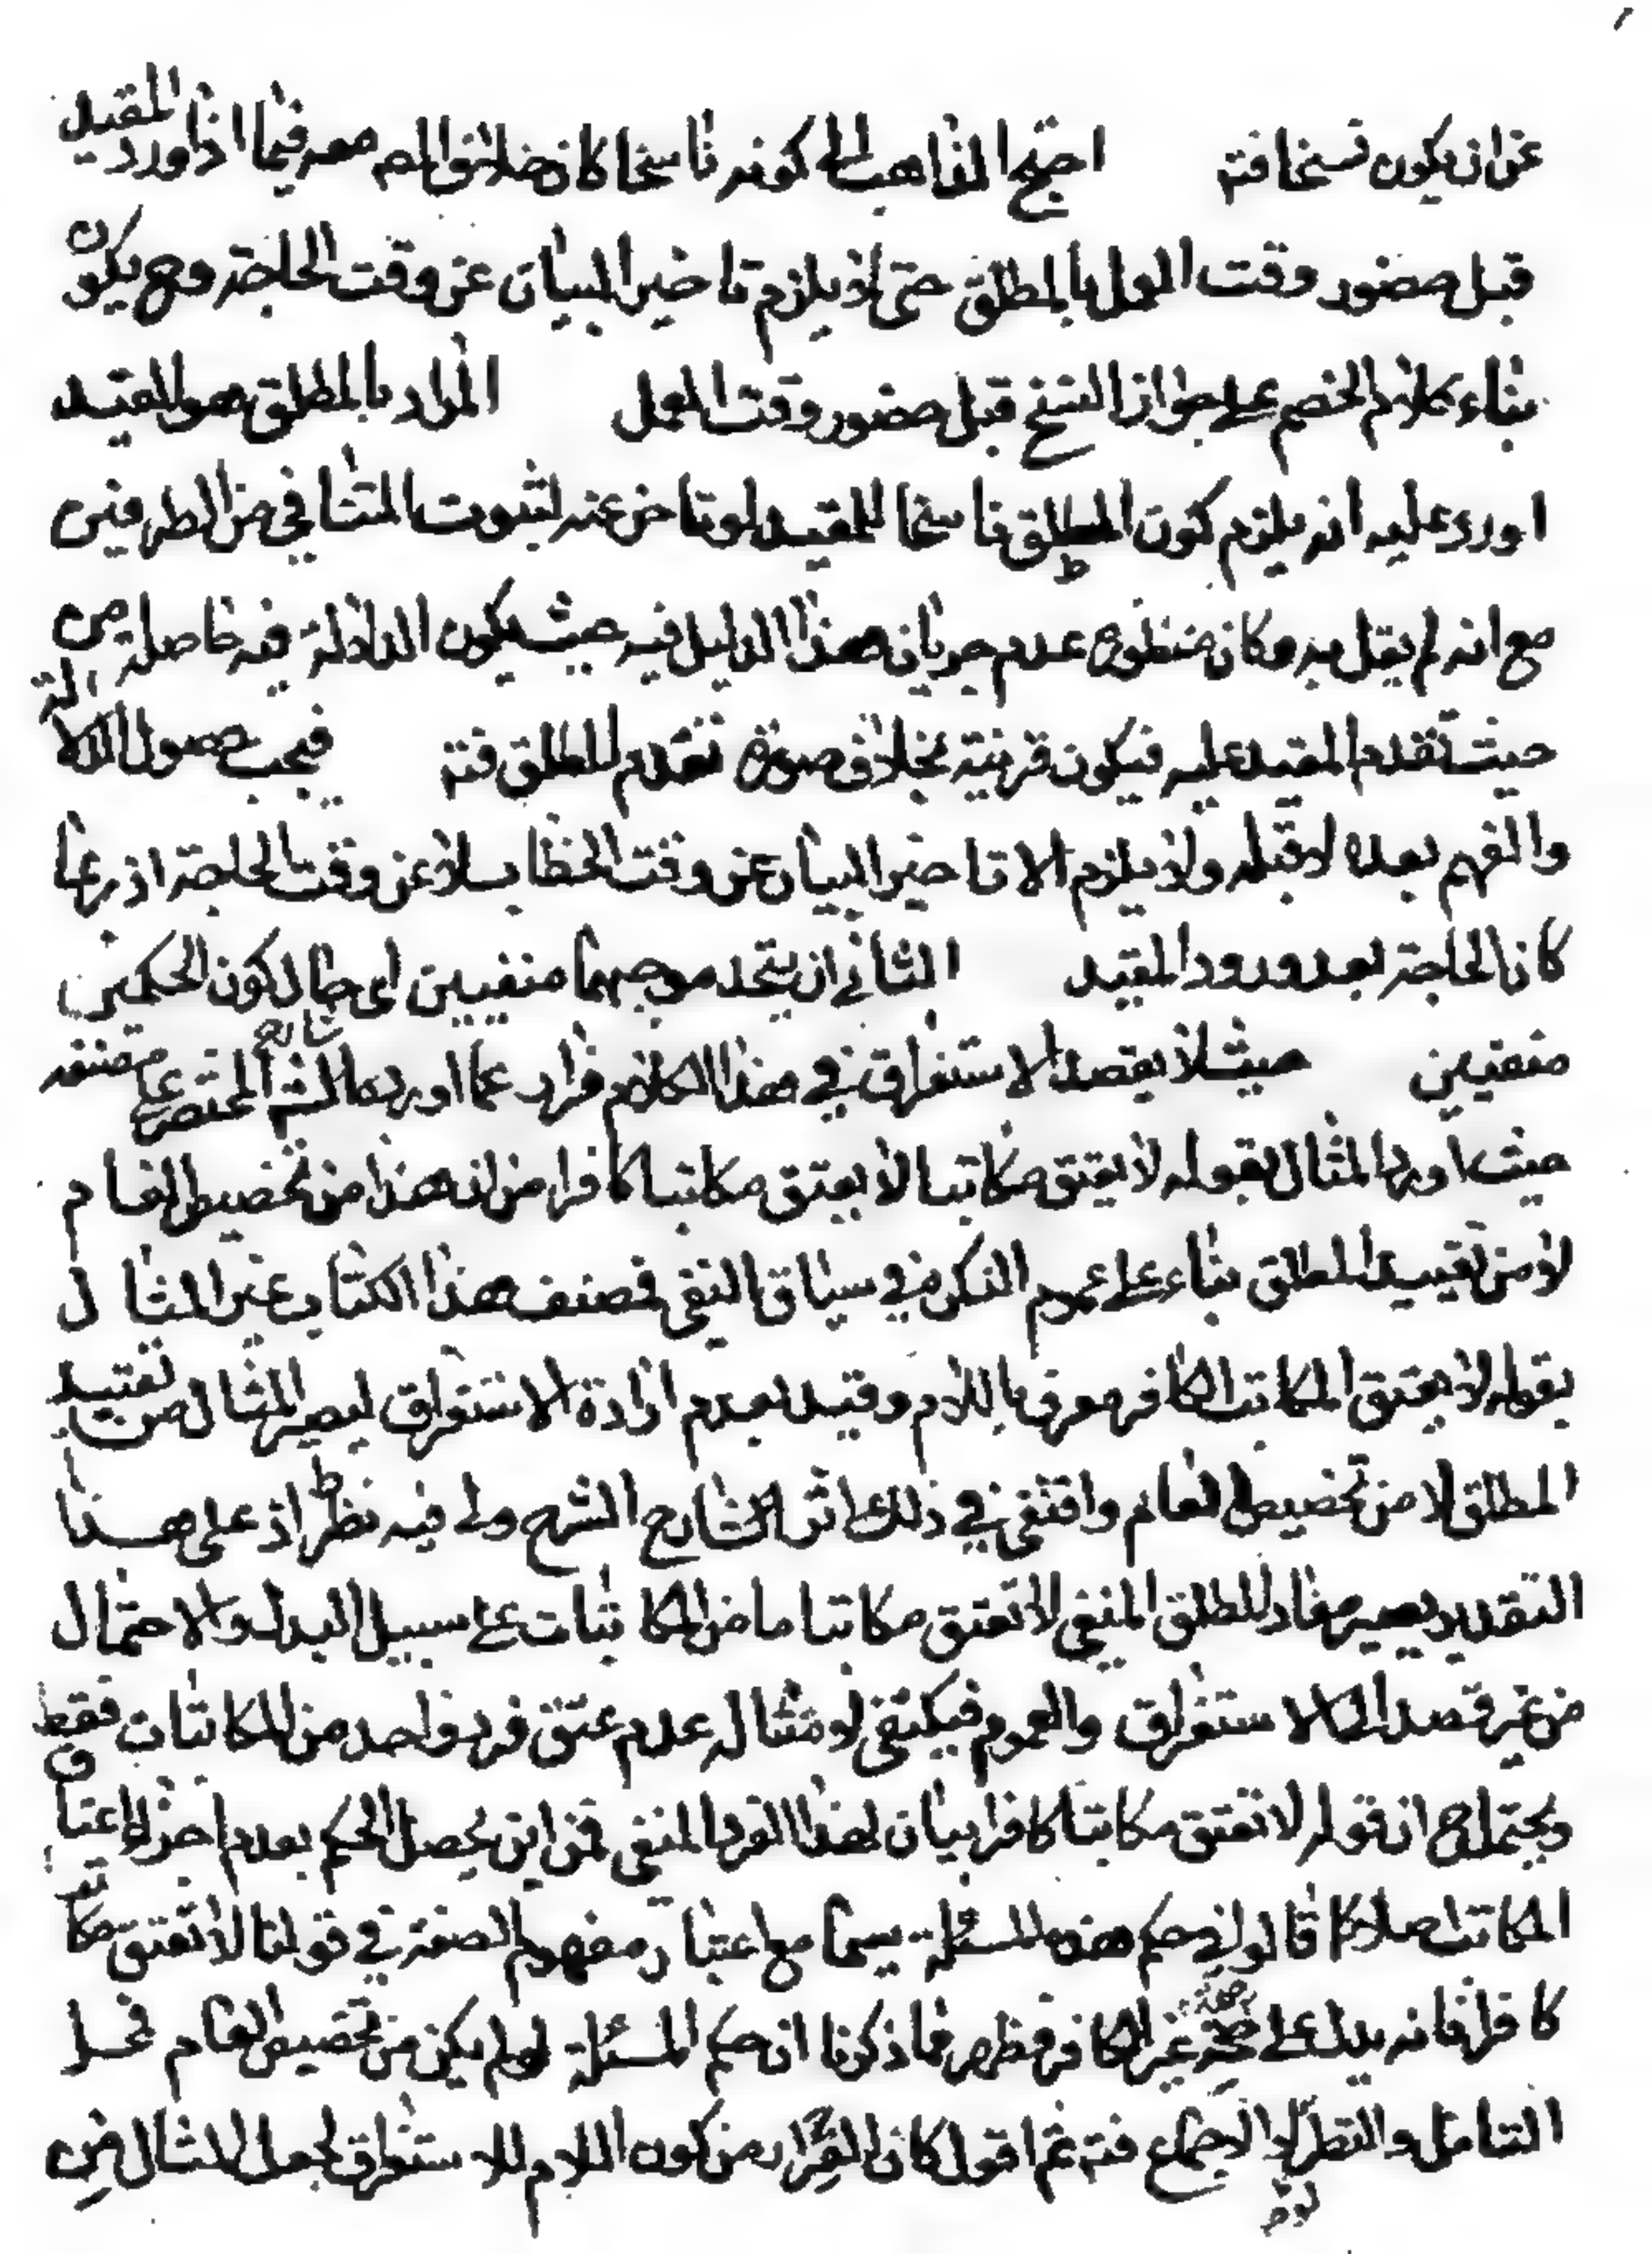 عن ان يكون نسخا فتد احتج الذاهب الى كونه ناسخا كان خلاف المص معه فيما اذا ورد المقيد
قبل حضور وقت العمل بالمطلق حتى لا يلزم تاخير البيان عن وقت الحاجة وح يكون
بناء كلام الخصم على جواز النسخ قبل حضور وقت العمل المراد بالمطلق هو المقيد
اورد عليه انه يلزم كون المطلق ناسخا للمقيد لو تاخر عنه لثبوت التنافي من الطرفين
مع انه لم يقل به وكان منظوره عدم جريان هذا الدليل فيه حيث يكون الدلالة فيه حاصلة من
حيث تقدم المقيد عليه فيكون قرينة بخلاف صورة تقدم المطلق فتد فيجب حصول الدلالة
والفهم بعده لا قبله ولا يلزم الا تاخير البيان عن وقت الخطاب لا عن وقت الحاجة اذ ربما
كان الحاجة بعد ورود المقيد الثاني ان يتحد موجبهما منفيين اى حال كون الحكمين
منفيين حيث لا يقصد الاستغراق في هذا الكلام فرار عما اورده الشارح المختصر على مصنفه
حيث اورد المثال بقوله لا يعتق مكاتبا لا يعتق مكاتبا كافرا من ان هذا من تخصيص العام
لا من تقييد المطلق بناء على عموم النكرة في سياق النفى فمصنف هذا الكتاب غير المثال
بقوله لا يعتق المكاتب الكافر معرفا باللام وقيد بعدم ارادة الاستغراق ليصير المثال من تقييد
المطلق لا من تخصيص العام واقتفى في ذلك اثر الشارح الشرح ولى فيه نظر اذ على هذا
التقدير يصير مفاد المطلق المنفى لا تعتق مكاتبا ما من المكاتبات على سبيل البدل والاحتمال
من غير قصد الى الاستغراق والعموم فيكتفى لامتثاله عدم عتق فرد واحد من المكاتبات فقط
ويحتمل ح ان قوله لا تعتق مكاتبا كافرا بيان لهذا الفرد المنفى فمن اين يحصل الحكم بعدم اجزاء اعتاق
المكاتب اصلا كما قالوا في حكم هذه المسئلة سيما مع اعتبار مفهوم الصفة في قولنا لا تعتق مكاتبا
كافرا فانه يدل على صحة غير الكافر فظهر مما ذكرنا ان حكم المسئلة لو لم يكن من تخصيص العام محل
التامل والنظر لولا الاجماع فتد ثم اقول كان الفرار من كون اللام للاستغراق لجعل المثال من